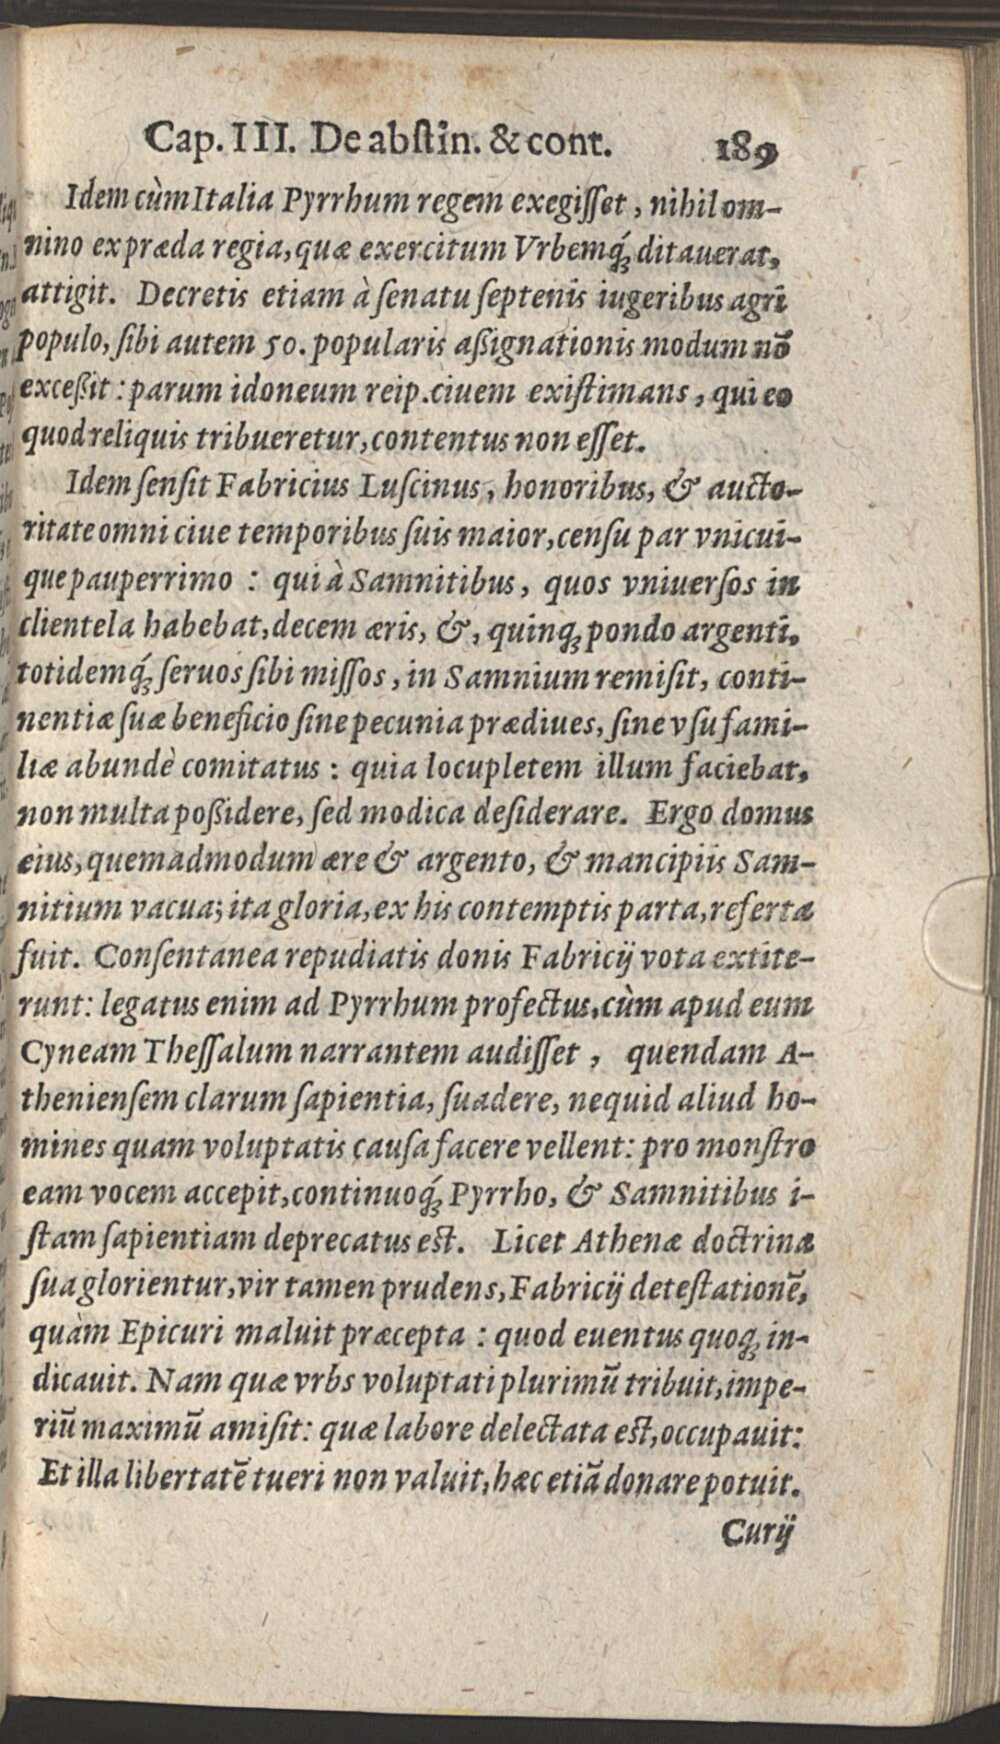 Cap. III. De abſtin. & cont. 189
Idem cùm Italia Pyrrhum regem exegiſſet, nihil om-
nino ex præda regia, quæ exercitum Vrbemq́; ditauerat,
attigit. Decretis etiam à ſenatu ſeptenis iugeribus agri
populo, ſibi autem 50. popularis aßignationis modum nō
exceßit: parum idoneum reip. ciuem exiſtimans, qui eo
quod reliquis tribueretur, contentus non eſſet.
Idem ſenſit Fabricius Luſcinus, honoribus, & aucto-
ritate omni ciue temporibus ſuis maior, cenſu par vnicui-
que pauperrimo: qui à Samnitibus, quos vniuerſos in
clientela habebat, decem æris, &, quinq; pondo argenti,
totidemq́; ſeruos ſibi miſſos, in Samnium remiſit, conti-
nentiæ ſuæ beneficio ſine pecunia prædiues, ſine vſu fami-
liæ abundè comitatus: quia locupletem illum faciebat,
non multa poßidere, ſed modica deſiderare. Ergo domus
eius, quemadmodum ære & argento, & mancipiis Sam-
nitium vacua; ita gloria, ex his contemptis parta, referta
fuit. Conſentanea repudiatis donis Fabricij vota extite-
runt: legatus enim ad Pyrrhum profectus, cùm apud eum
Cyneam Theſſalum narrantem audiſſet, quendam A-
thenienſem clarum ſapientia, ſuadere, nequid aliud ho-
mines quam voluptatis cauſa facere vellent: pro monſtro
eam vocem accepit, continuoq́; Pyrrho, & Samnitibus i-
ſtam ſapientiam deprecatus est. Licet Athenæ doctrina
ſua glorientur, vir tamen prudens, Fabricij deteſtationē,
quàm Epicuri maluit præcepta: quod euentus quoq; in-
dicauit. Nam quæ vrbs voluptati plurimū tribuit, impe-
riū maximū amiſit: quæ labore delectata est, occupauit:
Et illa libertatē tueri non valuit, hæc etiā donare potuit.
Curij